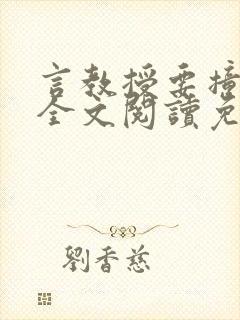 言教授要撞
全文閱讀免
劉香慈